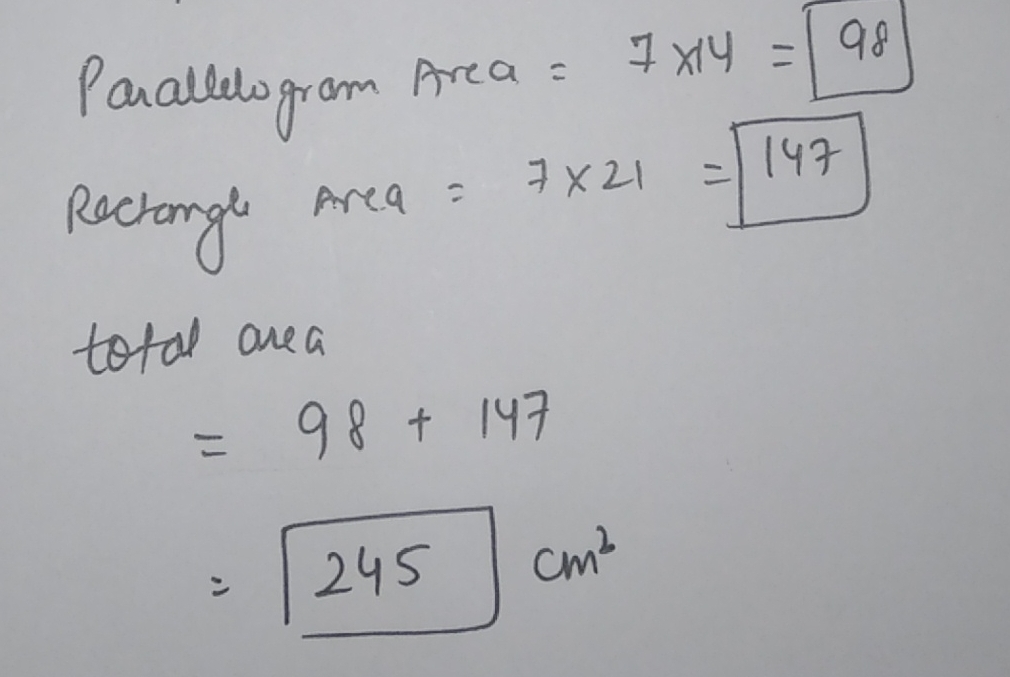 Parallelogram Area = 7 x 14 = 98
Rectangle Area = 7 x 21 = 147
total area
= 98 + 147
= 245 cm²